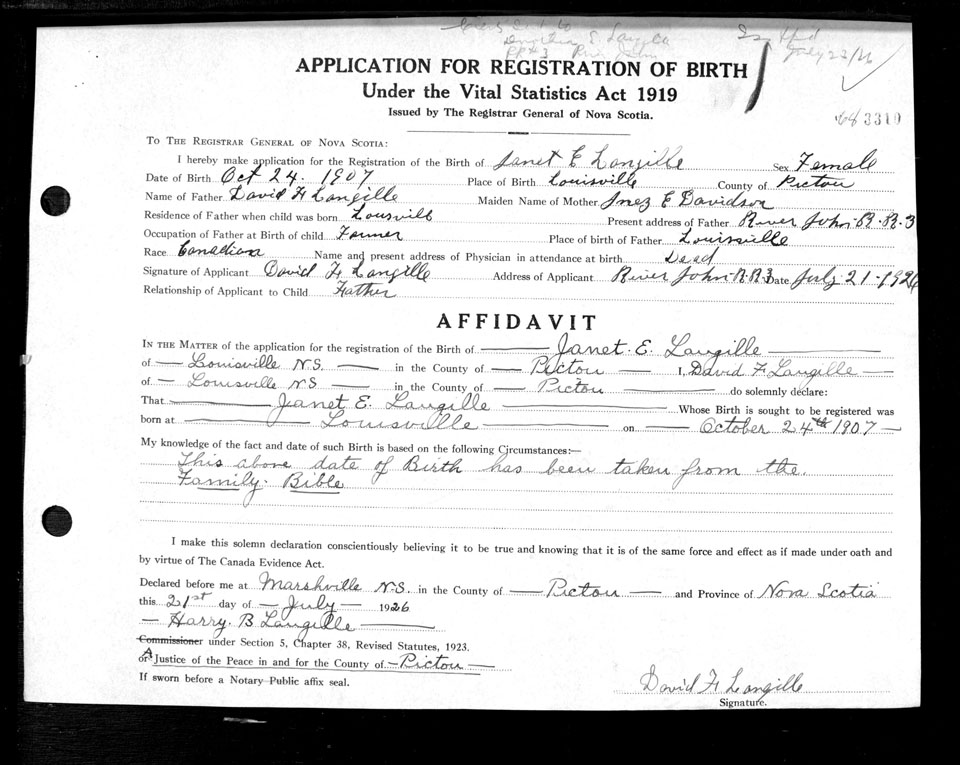 R.R.#3
July 23/26
APPLICATION FOR REGISTRATION OF BIRTH
Under the Vital Statistics Act 1919
Issued by The Registrar General of Nova Scotia.
3310
To The Registrar General of Nova Scotia:
I hereby make application for the Registration of the Birth of Janet E Langille Sex Female
Date of Birth Oct 24. 1907 Place of Birth Louisville County of Pictou
Name of Father David F Langille Maiden Name of Mother Inez E Davidson
Residence of Father when child was born Lousvill Present address of Father River John R.R.3
Occupation of Father at Birth of child Farmer Place of birth of Father Louisville
Race Canadian Name and present address of Physician in attendance at birth Dead
Signature of Applicant David F Langille Address of Applicant River John R.R.3 Date July 21-1926
Relationship of Applicant to Child Father
AFFIDAVIT
In the Matter of the application for the registration of the Birth of — Janet. E. Langille —
of — Louisville N.S. — in the County of — Pictou — I, David F. Langille —
of — Louisville N S — in the County of — Pictou — do solemnly declare:
That — Janet E. Langille — Whose Birth is sought to be registered was
born at — Louisville — on — October 24th 1907 —
My knowledge of the fact and date of such Birth is based on the following Circumstances:—
This above date of Birth has been taken from the
Family. Bible
I make this solemn declaration conscientiously believing it to be true and knowing that it is of the same force and effect as if made under oath and
by virtue of The Canada Evidence Act.
Declared before me at Marshville N.S. in the County of — Pictou — and Province of Nova Scotia
this 21st day of — July — 1926
— Harry. B Langille —
Commissioner under Section 5, Chapter 38, Revised Statutes, 1923.
or A Justice of the Peace in and for the County of — Pictou —
If sworn before a Notary Public affix seal.
David F Langille
Signature.